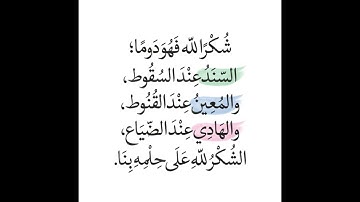 شُكْرًا للّه فَهُوَ دَومًا؛
السّنَدُ عِنْدَ السُقُوط،
والمُعِينُ عِنْدَ القُنُوط،
والهَادِي عِندَ الضّيَاع،
الشُكْرُ للّهِ عَلَى حِلْمِهِ بِنَا.